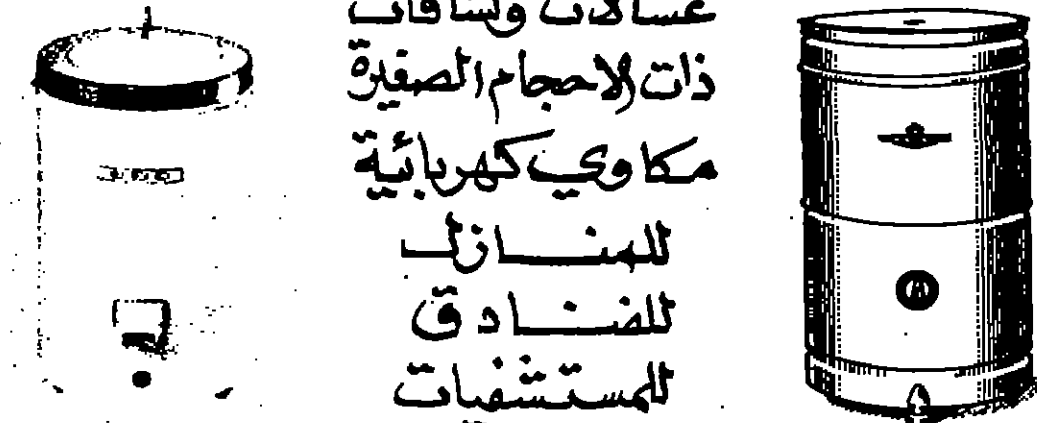 غسالات ونشافات
ذات الاحجام الصغيرة
مكاوي كهربائية
للمنازل
للفنادق
للمستشفيات